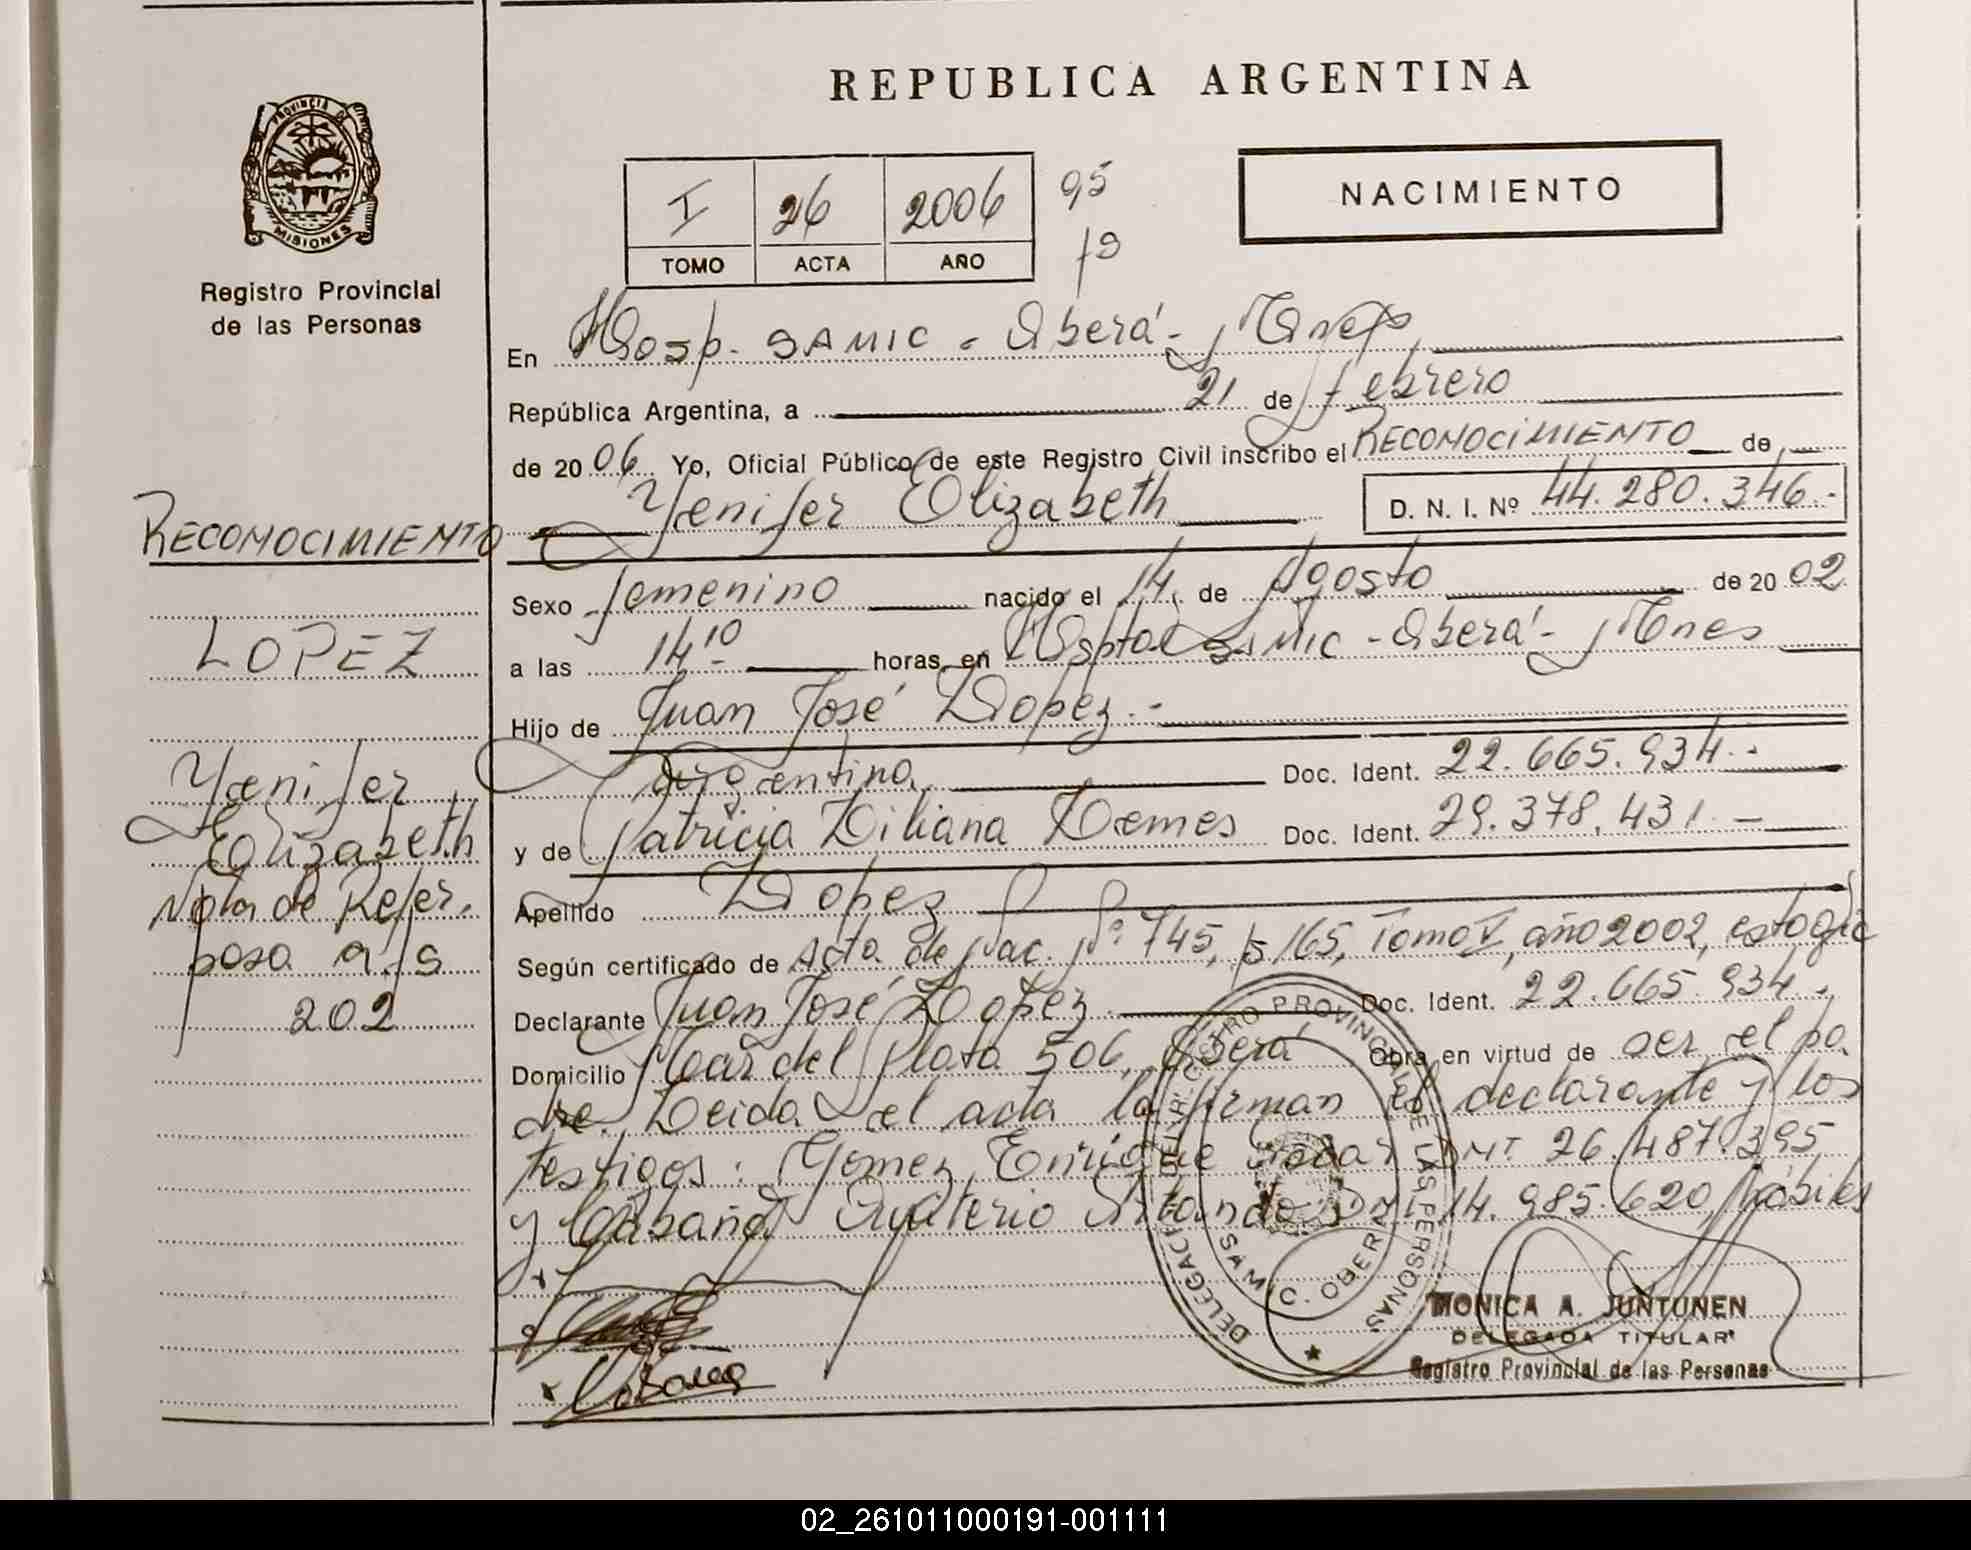 REPUBLICA ARGENTINA
PROVINCIA DE
MISIONES
Registro Provincial
de las Personas
I 26 2006 95
TOMO ACTA AÑO
NACIMIENTO
En Hosp. SAMIC - Oberá - Mnes
República Argentina, a 21 de febrero
de 2006 Yo, Oficial Público de este Registro Civil inscribo el RECONOCIMIENTO de
Yenifer Elizabeth D. N. I. Nº 44.280.346.-
Sexo femenino nacido el 14 de Agosto de 2002
a las 14 10 horas, en Hosptal SAMIC - Oberá - Mnes
Hijo de Juan José Lopez.-
argentina Doc. Ident. 22.665.934.-
y de Patricia Liliana Lemes Doc. Ident. 29.378.431.-
Apellido Lopez
Según certificado de Acta de Nac. Nº 745, fs 165, Tomo V, año 2002, esta ofic
Declarante Juan José Lopez Doc. Ident. 22.665.934.
Domicilio Mar del Plata 506, Oberá Obra en virtud de ser el pa
dre. Leida el acta la firman el declarante y los
testigos: Gomez Enrique DNI 26.487.395
y Cabaña DNI 14.985.620, hábiles
RECONOCIMIENTO
LOPEZ
Yenifer
Elizabeth
Nota de Refer.
pasa a fs
202
REGISTRO PROVINCIAL DE LAS PERSONAS
DELEGACION
SAMIC. OBERA
MONICA A. JUNTUNEN
DELEGADA TITULAR
Registro Provincial de las Personas
02_261011000191-001111